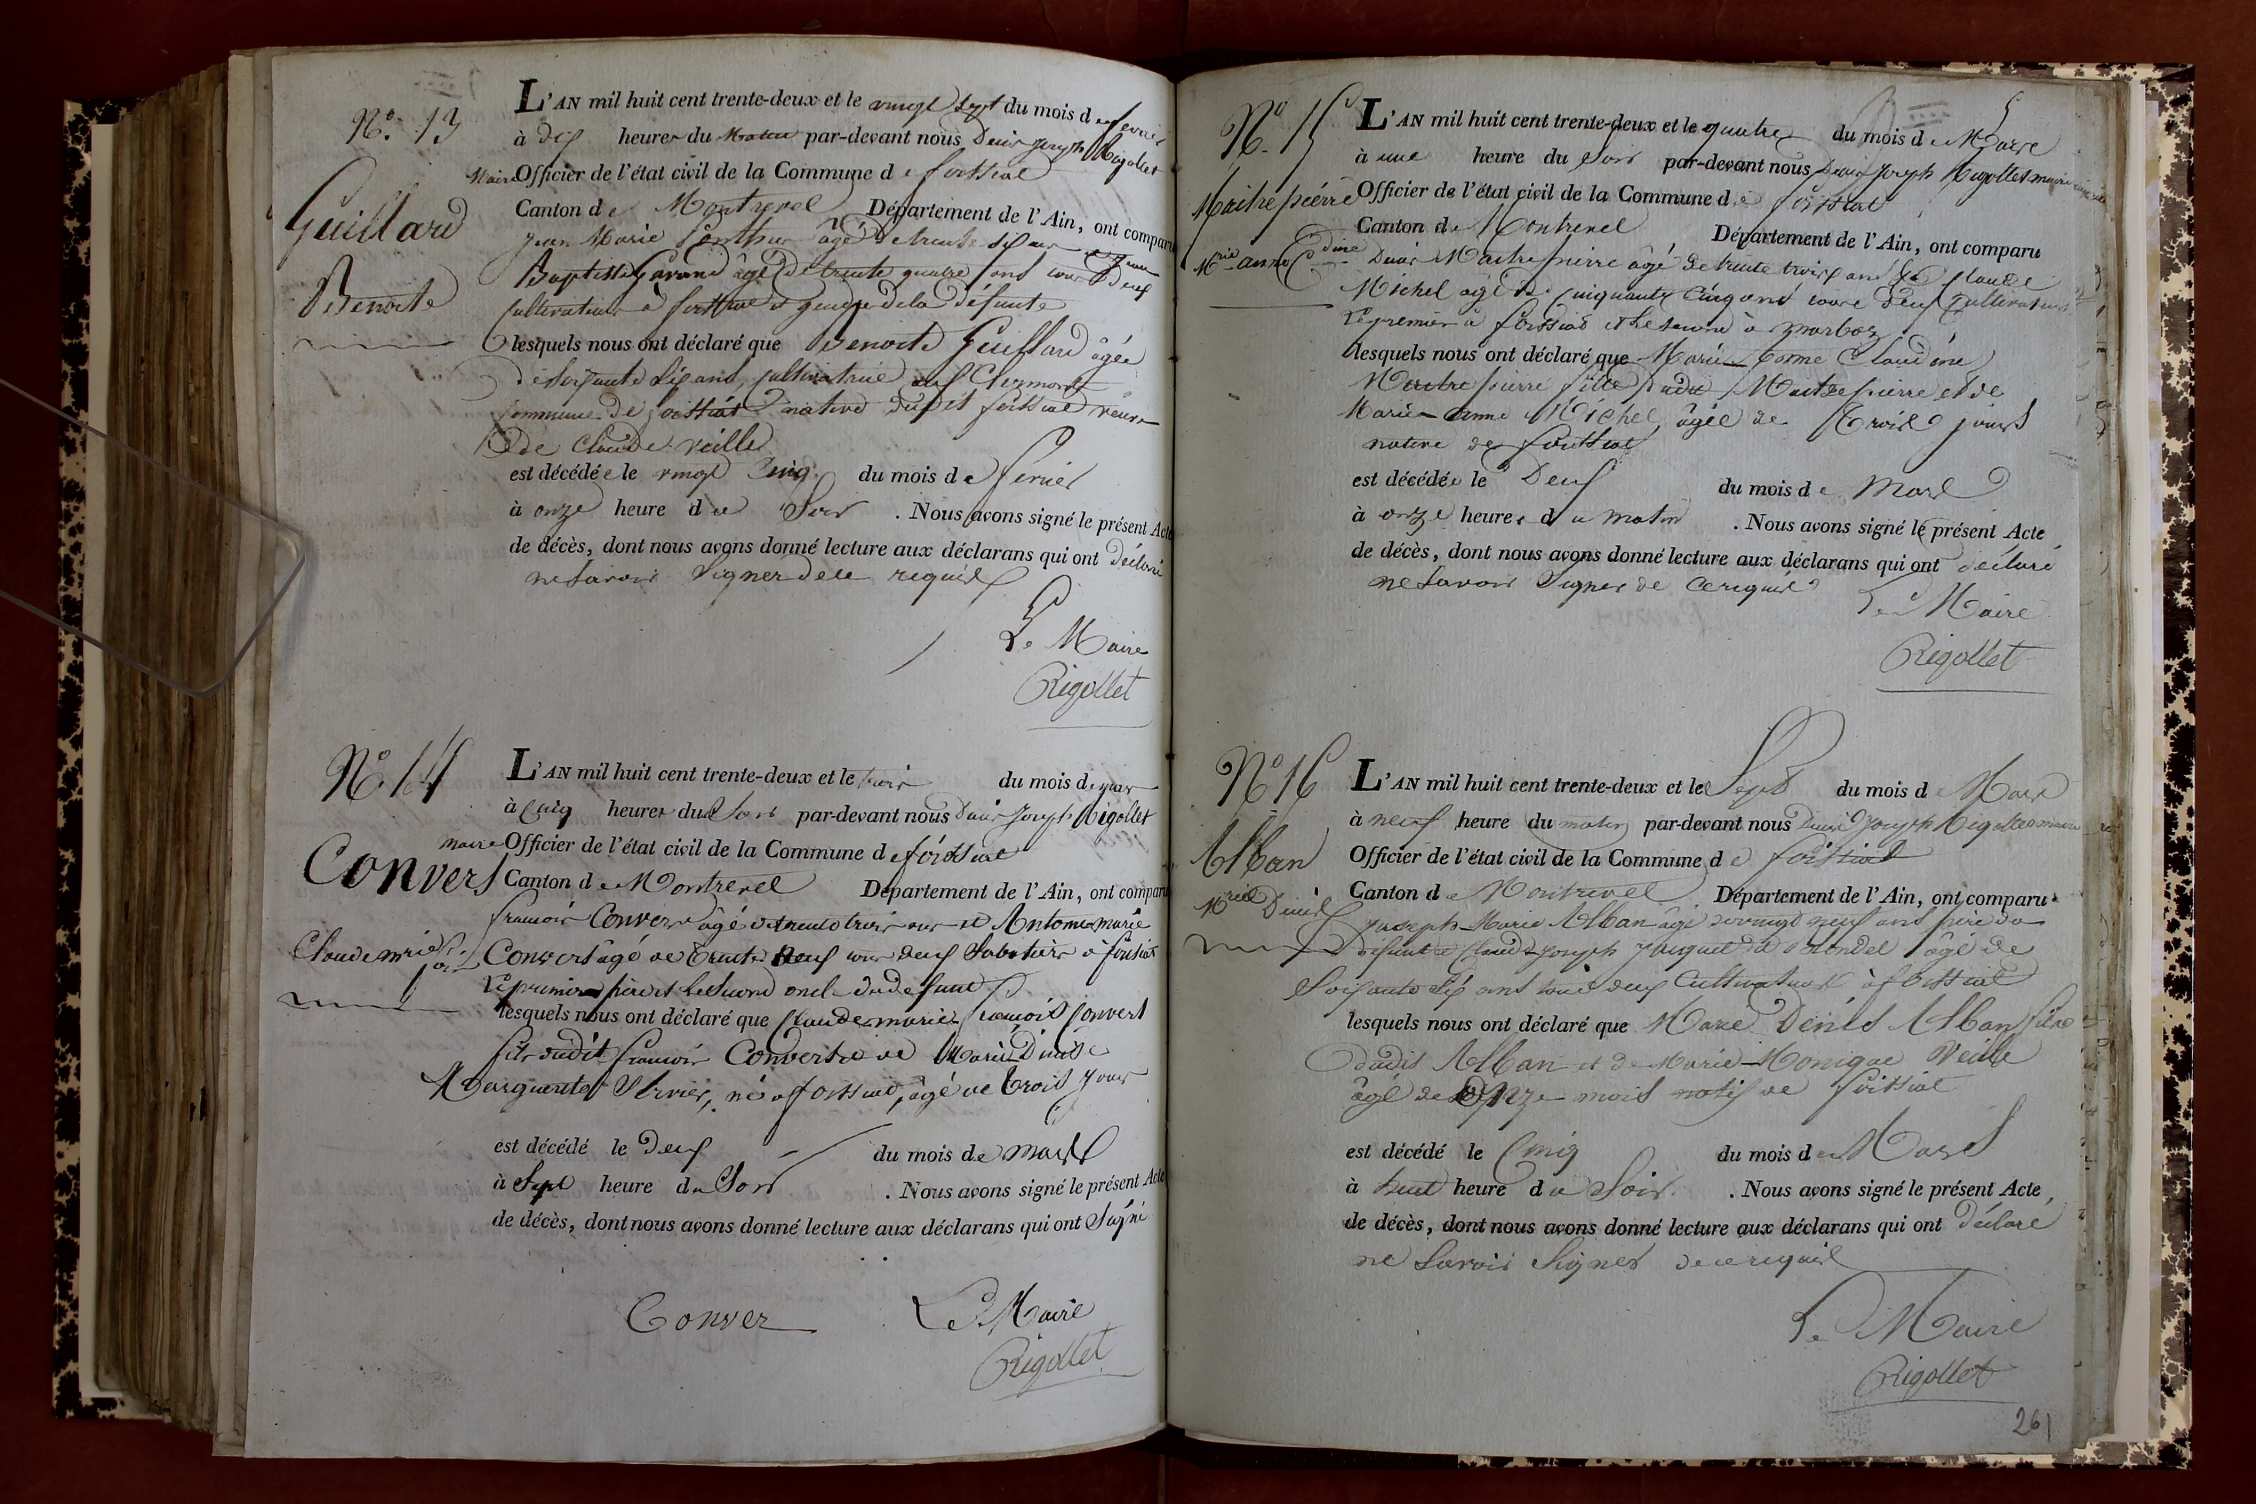 N.º 13
Guillard
Benoite
L'AN mil huit cent trente-deux et le vingt sept du mois de fevrier
à dix heures du matin par-devant nous Denis joseph Rigollet
Maire Officier de l'état civil de la Commune de foissiat
Canton de Montrevel Département de l'Ain, ont comparu
jean Marie âgé de trente six ans et jean
Baptiste âgé de trente quatre ans tous deux
Cultivateurs a foissiat et gendre de la défunte
lesquels nous ont déclaré que Benoite Guillard âgée
de soixante six ans, cultivatrice aux
commune de foissiat native dudit foissiat veuve
de Claude veille
est décédée le vingt cinq du mois de fevrier
à onze heure du Soir . Nous avons signé le présent Acte
de décès, dont nous avons donné lecture aux déclarans qui ont déclaré
ne savoir signer de ce requis
Le Maire
Rigollet
Nº 14
Convers
Claude mrie
L'AN mil huit cent trente-deux et le trois du mois de mars
à cinq heures du Soir par-devant nous Denis Joseph Rigollet
maire Officier de l'état civil de la Commune de foissiat
Canton de Montrevel Département de l'Ain, ont comparu
francois Convers âgé de trente trois ans et Antoine marie
Convers âgé de trente neuf ans tous deux Sabotiers a foissiat
le premier père et le second oncle du defunt
lesquels nous ont déclaré que Claude marie francois Convers
fils dudit francois Convers et de Marie Denise
Marguerite né a foissiat, âgé de trois jours
est décédé le deux du mois de mars
à Sept heure du Soir . Nous avons signé le présent Acte
de décès, dont nous avons donné lecture aux déclarans qui ont Signé
Conver Le Maire
Rigollet
Nº 15
Maitrepierre
Mrie anne Cdine
L'AN mil huit cent trente-deux et le quatre du mois de Mars
à une heure du Soir par-devant nous Denis Joseph Rigollet maire
Officier de l'état civil de la Commune de foissiat
Canton de Montrevel Département de l'Ain, ont comparu
Denis Maitrepierre âgé de trente trois ans et Claude
Michel âgé de cinquante cinq ans tous deux Cultivateurs
le premier à foissiat et le second à marboz
lesquels nous ont déclaré que Marie anne Claudine
Maitrepierre fille dudit Maitrepierre et de
Marie-anne Michel, âgée de trois jours
native de foissiat
est décédée le Deux du mois de Mars
à onze heures du matin . Nous avons signé le présent Acte
de décès, dont nous avons donné lecture aux déclarans qui ont déclaré
ne savoir Signer de ce requis
Le Maire
Rigollet
Nº 16
Alban
Mrie Denis
L'AN mil huit cent trente-deux et le Sept du mois de Mars
à neuf heure du matin par-devant nous Denis Joseph Rigollet maire
Officier de l'état civil de la Commune de foissiat
Canton de Montrevel Département de l'Ain, ont comparu
joseph-Marie Alban âgé de vingt neuf ans père du
defunt et Claude joseph dit Blondel âgé de
Soixante six ans tous deux Cultivateurs à foissiat
lesquels nous ont déclaré que Marie Denis Alban fils
dudit Alban et de Marie-Monique Veille
âgé de onze mois natif de foissiat
est décédé le Cinq du mois de Mars
à huit heure du Soir . Nous avons signé le présent Acte,
de décès, dont nous avons donné lecture aux déclarans qui ont déclaré
ne savoir Signer de ce requis
Le Maire
Rigollet
261